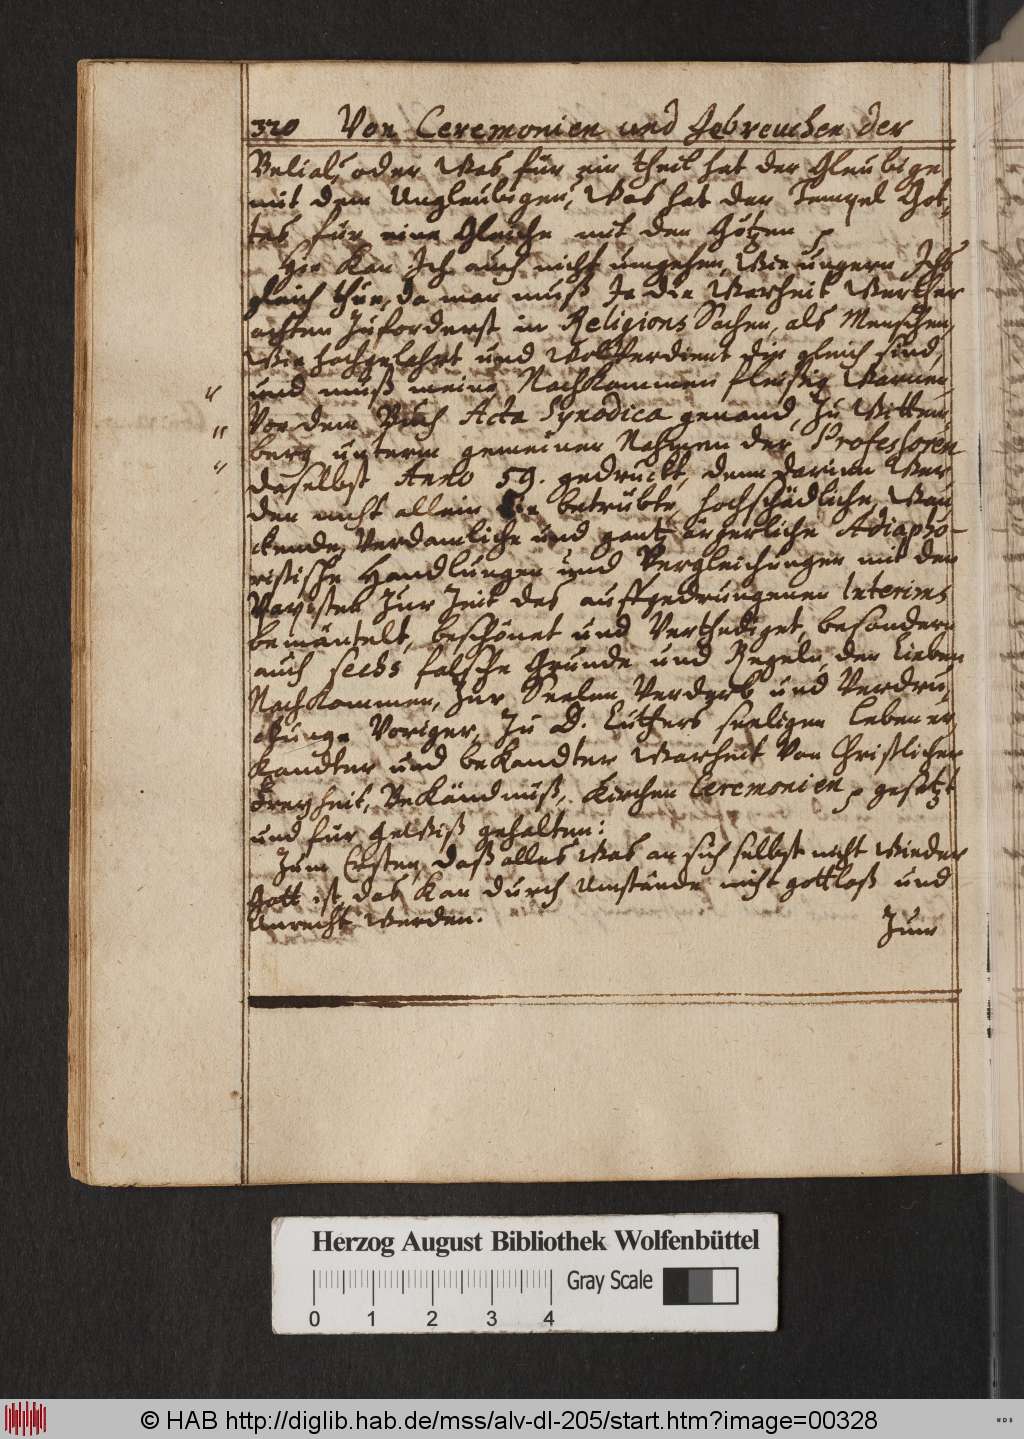 320 Von Ceremonien und Gebreuchen der
Belial, oder Was für ein theil hat der Gleubige
mit dem Ungleubigen, Was hat der Tempel Got-
tes für eine Gleiche mit den Götzen
Hie Kan Ich auch nicht umgehen, Wie ungern Ichs
gleich thue, da man muß Je die Warheit Werther
achten Zuforderst in Religions Sachen, als Menschen,
Wie hochgelahrt und WolVerdient Sie gleich sind,
und muß meine NachKommen fleissig Warnen,
Vor dem Buch Acta Synodica genand, Zu Wittem-
berg unterm gemeinen Nahmen der Professoren
daselbst Anno 59. gedruckt, denn darinn Wer
den nicht allein die betrübte, hochschädliche, Wan
ckende, Verdamliche und gantz ärgerliche Adiapho-
ristische Handlungen und Vergleichungen mit den
Papisten Zur Zeit des auffgedrungenen Interims
bemäntelt, beschönet und Verthediget, besondern
auch sechs falsche Grunde und Regeln, der Lieben
NachKommen, Zur Seelen Verderb und Verdru-
ckunge Voriger, Zu D. Luthers seeligen Leben er
Kandter und beKandter Warheit Von Christlicher
Freyheit, BeKändnuß, Kirchen Ceremonien gesetzt
und für geWiß gehalten:
Zum Ersten, daß alles Was an sich selbst nicht Wieder
Gott ist, das Kan durch Umstände nicht gottloß und
Unrecht Werden.
Zum
Herzog August Bibliothek Wolfenbüttel
Gray Scale
0 1 2 3 4
© HAB http://diglib.hab.de/mss/alv-dl-205/start.htm?image=00328